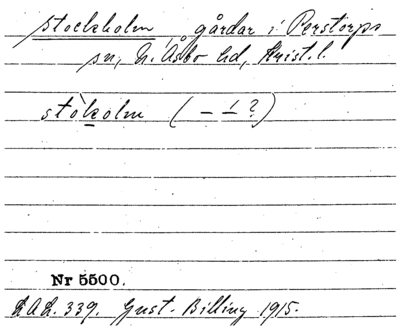 Stockholm, gårdar i Perstorps
sn, N. Åsbo hd, Krist. l.
stòkolm ( – –́ ? )
Nr 5500.
LAL. 339. Gust. Billing 1915.